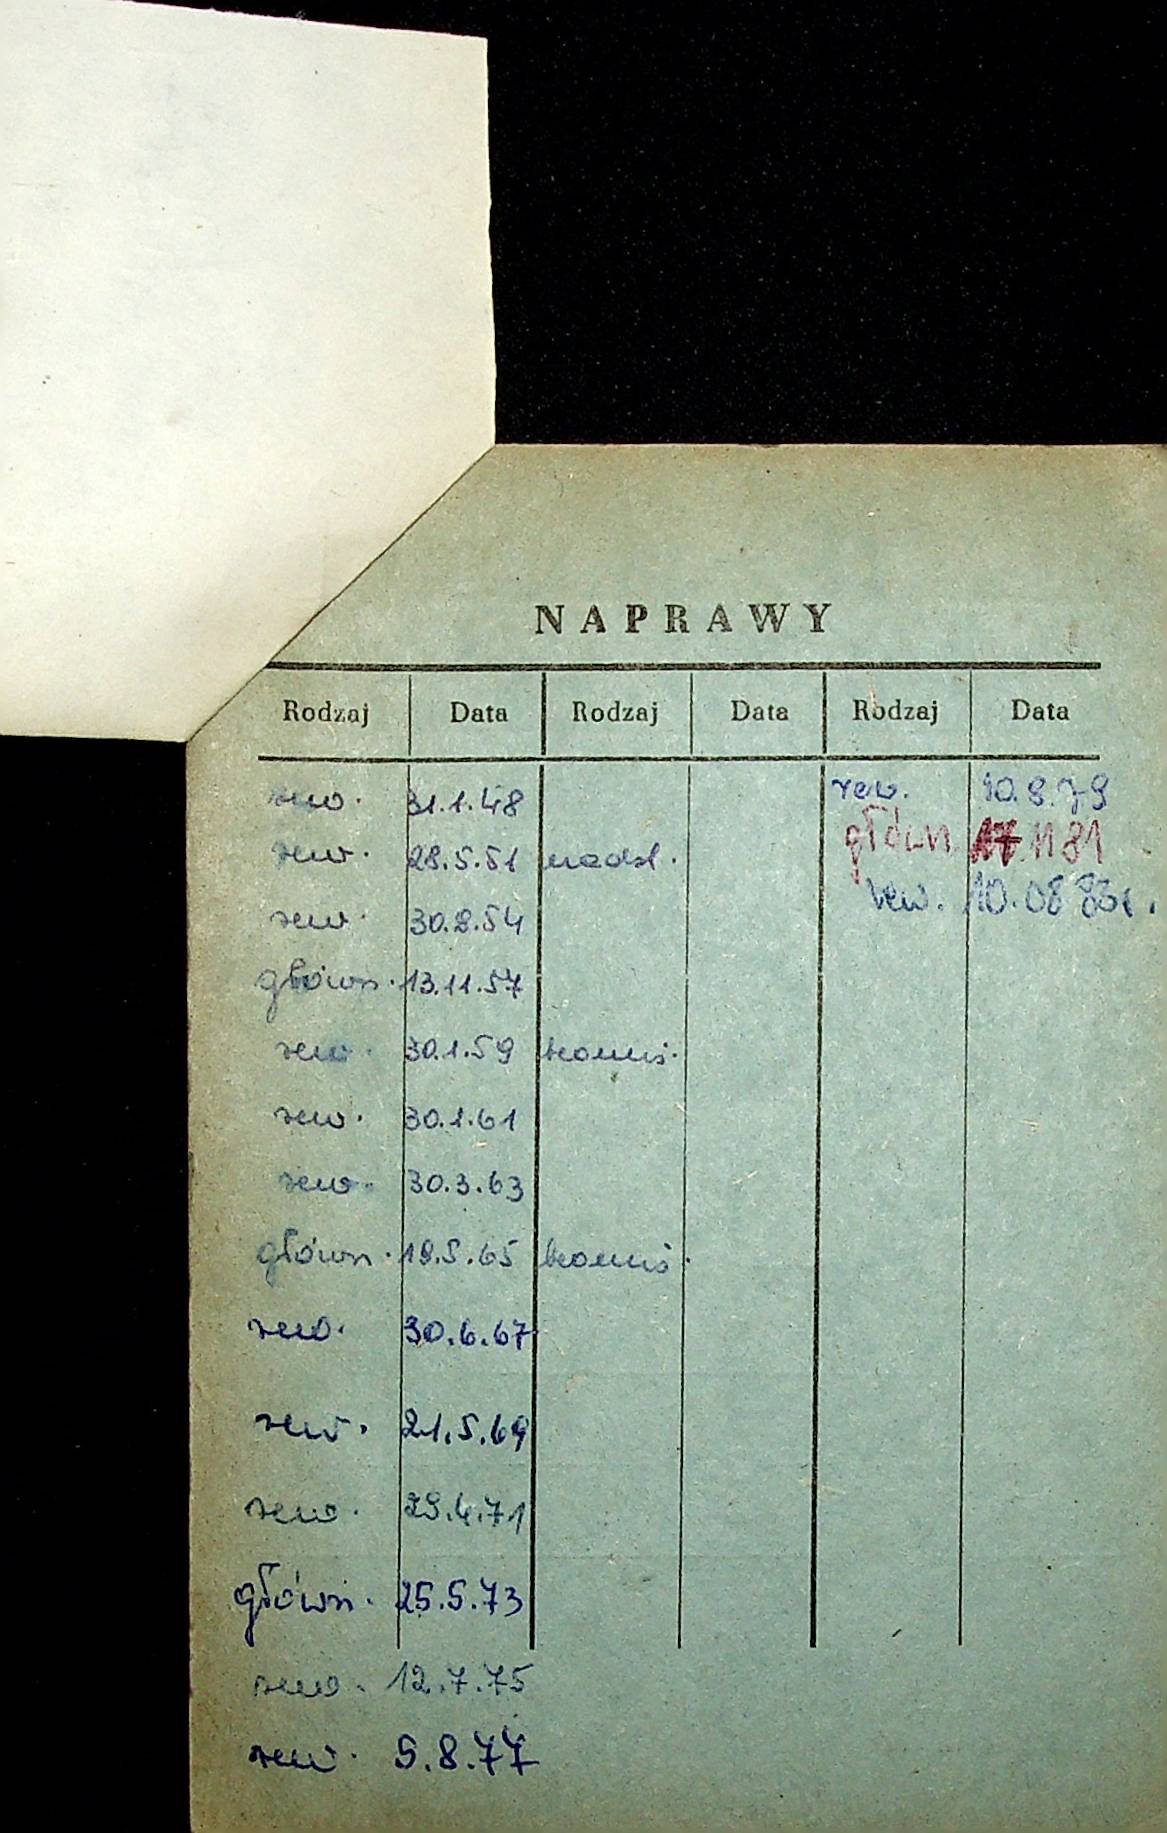 NAPRAWY
Rodzaj Data Rodzaj Data Rodzaj Data
rew. 31.1.48 rew. 10.9.79
rew. 28.5.51 nadzl. główn. 17.11 81
rew. 30.8.54 rew. 10.08 83r.
główn. 13.11.57
rew. 30.1.59 komis.
rew. 30.1.61
rew. 30.3.63
główn. 19.5.65 komis.
rew. 30.6.67
rew. 21.5.69
rew. 29.4.71
główn. 25.5.73
rew. 12.7.75
rew. 5.8.77